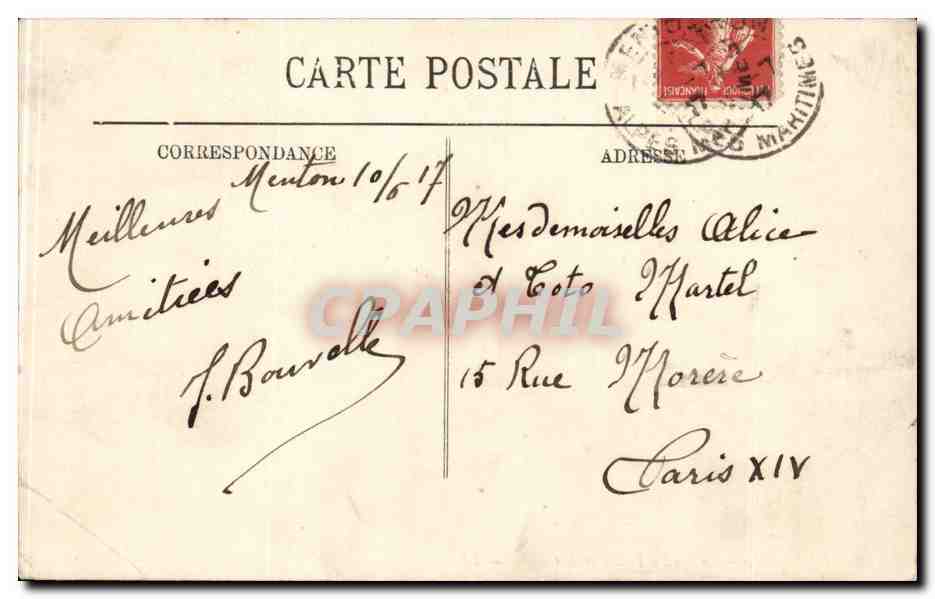 CARTE POSTALE
FRANÇAISE
ALPES MARITIMES
CORRESPONDANCE
Menton 10/6 17
Meilleures
Amitiées
J. Bouvelle
ADRESSE
Mesdemoiselles Alice
et Toto Martel
15 Rue Morère
Paris XIV
CPAPHIL